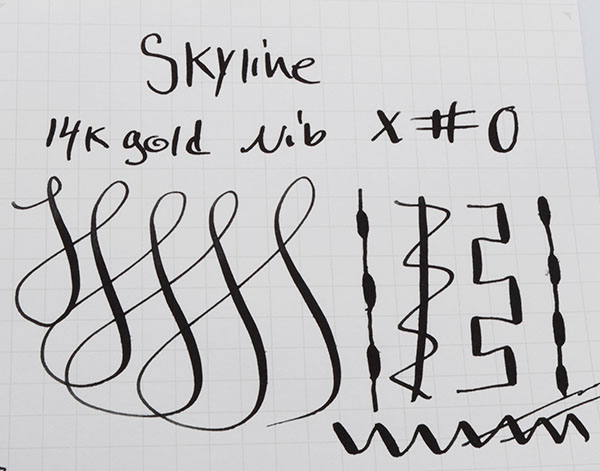 Skyline
14K gold Nib X # 0